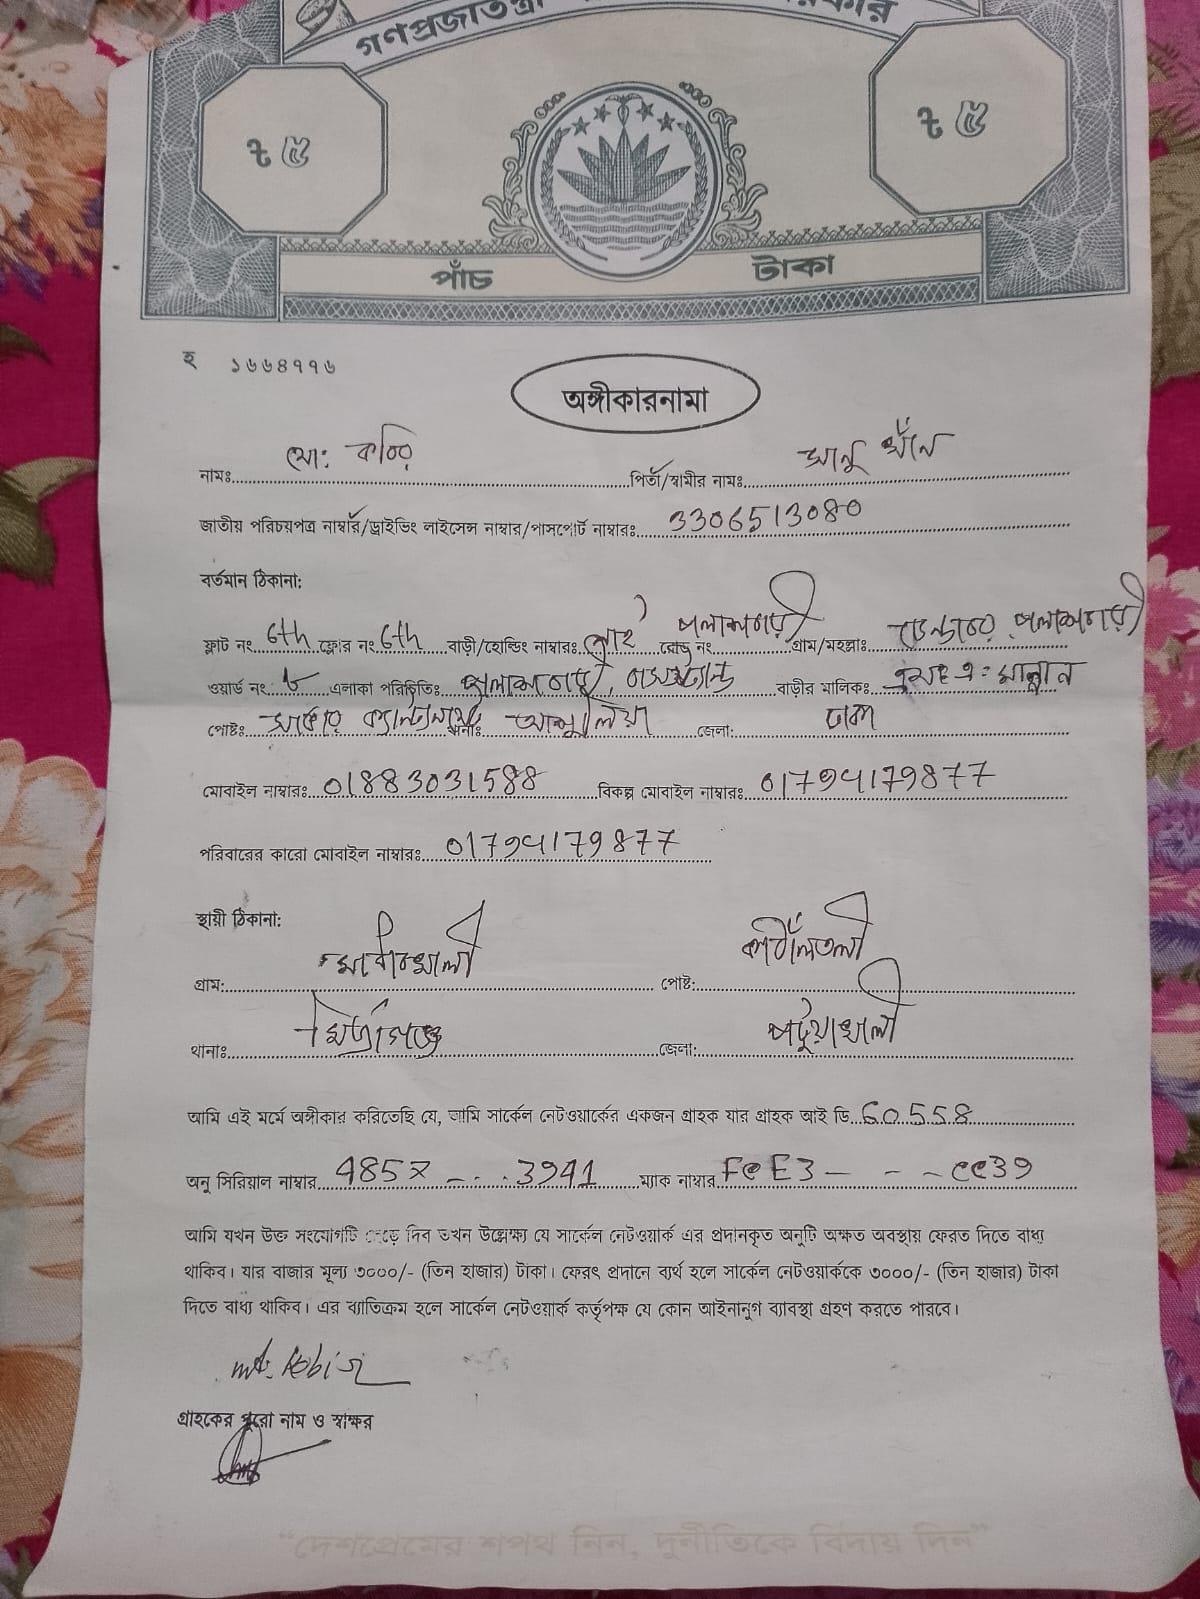 গণপ্রজাতন্ত্রী
৳ ৫ ৳ ৫
পাঁচ টাকা
হ ১৬৬৪৭৭৬
অঙ্গীকারনামা
নামঃ মোঃ কবির পিতা/স্বামীর নামঃ সানু খাঁন
জাতীয় পরিচয়পত্র নাম্বার/ড্রাইভিং লাইসেন্স নাম্বার/পাসপোর্ট নাম্বারঃ 3306513080
বর্তমান ঠিকানা:
ফ্লাট নং 6th ফ্লোর নং 6th বাড়ী/হোল্ডিং নাম্বারঃ নাই রোড নং পলাশবাড়ী গ্রাম/মহল্লাঃ পলাশবাড়ী
ওয়ার্ড নং এলাকা পরিচিতিঃ পলাশবাড়ী, বাসস্ট্যান্ড বাড়ীর মালিকঃ মান্নান
পোষ্টঃ সাভার ক্যান্টনমেন্ট থানাঃ আশুলিয়া জেলা: ঢাকা
মোবাইল নাম্বারঃ 01883031588 বিকল্প মোবাইল নাম্বারঃ 01794179877
পরিবারের কারো মোবাইল নাম্বারঃ 01794179877
স্থায়ী ঠিকানা:
গ্রাম: পোষ্ট: কাঁঠালতলী
থানাঃ মির্জাগঞ্জ জেলা: পটুয়াখালী
আমি এই মর্মে অঙ্গীকার করিতেছি যে, আমি সার্কেল নেটওয়ার্কের একজন গ্রাহক যার গ্রাহক আই ডি 60558
অনু সিরিয়াল নাম্বার 485x - . . 3941 ম্যাক নাম্বার FeE3 - - - ee39
আমি যখন উক্ত সংযোগটি ছেড়ে দিব তখন উল্লেক্ষ্য যে সার্কেল নেটওয়ার্ক এর প্রদানকৃত অনুটি অক্ষত অবস্থায় ফেরত দিতে বাধ্য
থাকিব। যার বাজার মূল্য ৩০০০/- (তিন হাজার) টাকা। ফেরৎ প্রদানে ব্যর্থ হলে সার্কেল নেটওয়ার্ককে ৩০০০/- (তিন হাজার) টাকা
দিতে বাধ্য থাকিব। এর ব্যাতিক্রম হলে সার্কেল নেটওয়ার্ক কর্তৃপক্ষ যে কোন আইনানুগ ব্যাবস্থা গ্রহণ করতে পারবে।
md. Kobir
গ্রাহকের পুরো নাম ও স্বাক্ষর
“দেশপ্রেমের শপথ নিন, দুর্নীতিকে বিদায় দিন”